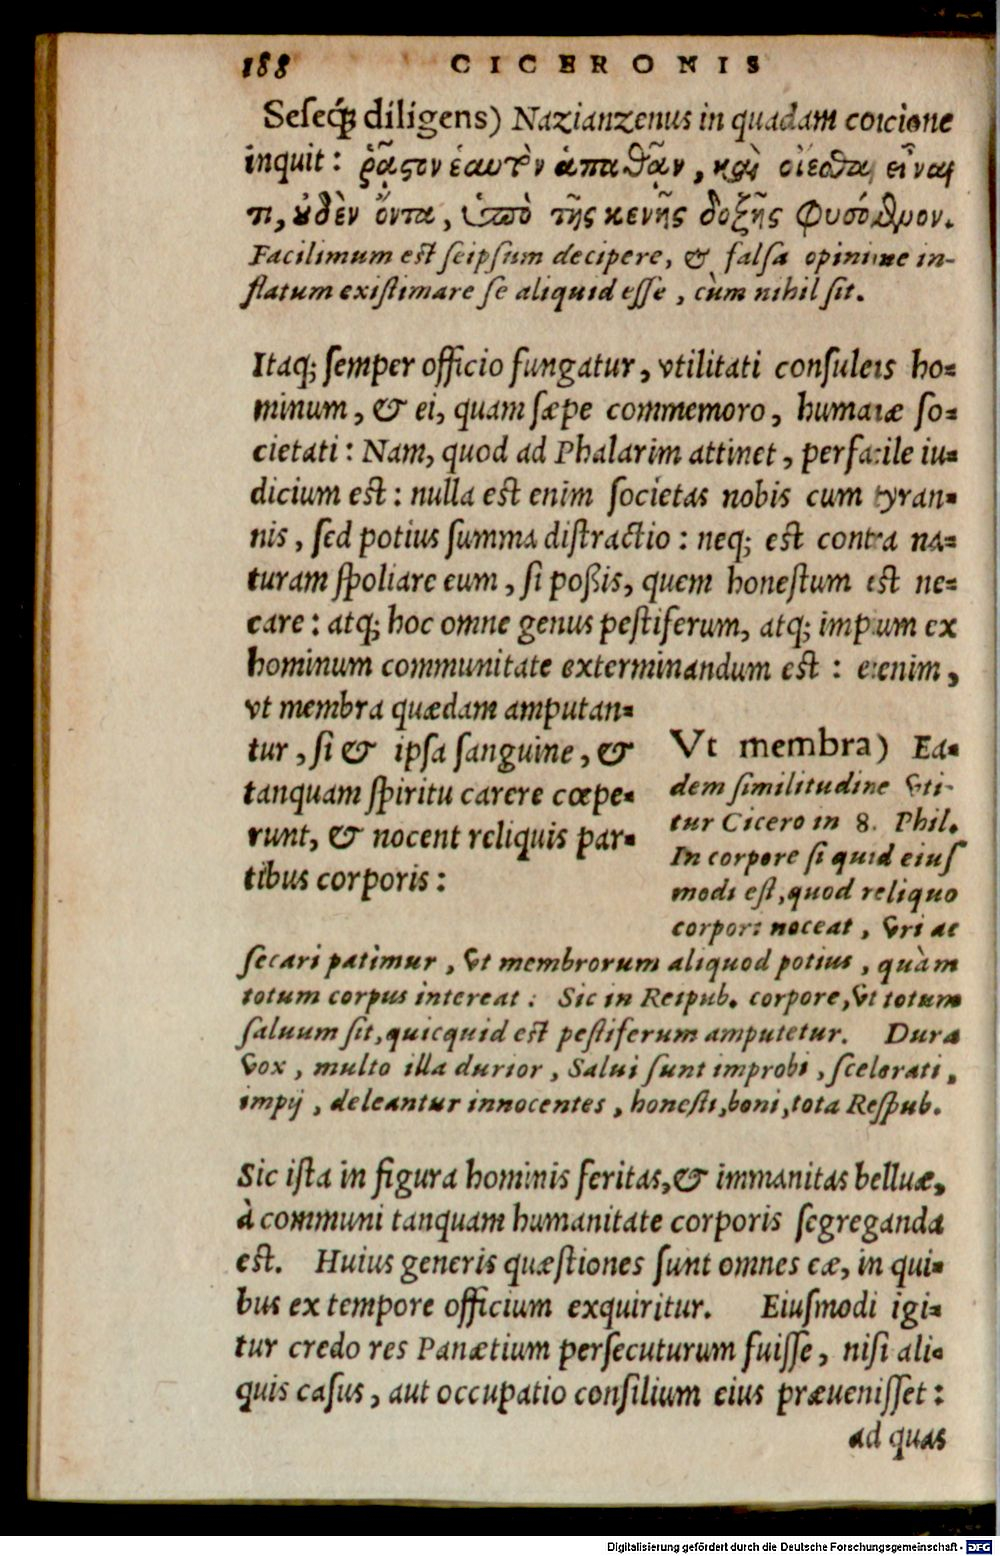 188 CICERONIS
Seseq́; diligens) Nazianzenus in quadam cōcione
inquit: ῥᾷστον ἑαυτὸν ἀπατᾶν, καὶ οἴεσθαι εἶναι
τι, οὐδὲν ὄντα, ὑπὸ τῆς κενῆς δοξῆς φυσόμενον.
Facilimum est seipsum decipere, & falsa opinione in-
flatum existimare se aliquid esse, cùm nihil sit.
Itaq; semper officio fungatur, vtilitati consulens ho-
minum, & ei, quam sæpe commemoro, humanæ so-
cietati: Nam, quod ad Phalarim attinet, perfacile iu-
dicium est: nulla est enim societas nobis cum tyran-
nis, sed potius summa distractio: neq; est contra na-
turam spoliare eum, si poßis, quem honestum est ne-
care: atq; hoc omne genus pestiferum, atq; impium ex
hominum communitate exterminandum est: etenim,
vt membra quædam amputan-
tur, si & ipsa sanguine, &
tanquam spiritu carere cœpe-
runt, & nocent reliquis par-
tibus corporis:
Vt membra) Ea-
dem similitudine vti-
tur Cicero in 8. Phil.
In corpore si quid eius
modi est, quod reliquo
corpori noceat, vri ac
secari patimur, vt membrorum aliquod potius, quàm
totum corpus intereat: Sic in Reipub. corpore, vt totum
saluum sit, quicquid est pestiferum amputetur. Dura
vox, multo illa durior, Salui sunt improbi, scelerati,
impij, deleantur innocentes, honesti, boni, tota Respub.
Sic ista in figura hominis feritas, & immanitas belluæ,
à communi tanquam humanitate corporis segreganda
est. Huius generis quæstiones sunt omnes eæ, in qui-
bus ex tempore officium exquiritur. Eiusmodi igi-
tur credo res Panætium persecuturum fuisse, nisi ali-
quis casus, aut occupatio consilium eius præuenisset:
ad quas
Digitalisierung gefördert durch die Deutsche Forschungsgemeinschaft - DFG